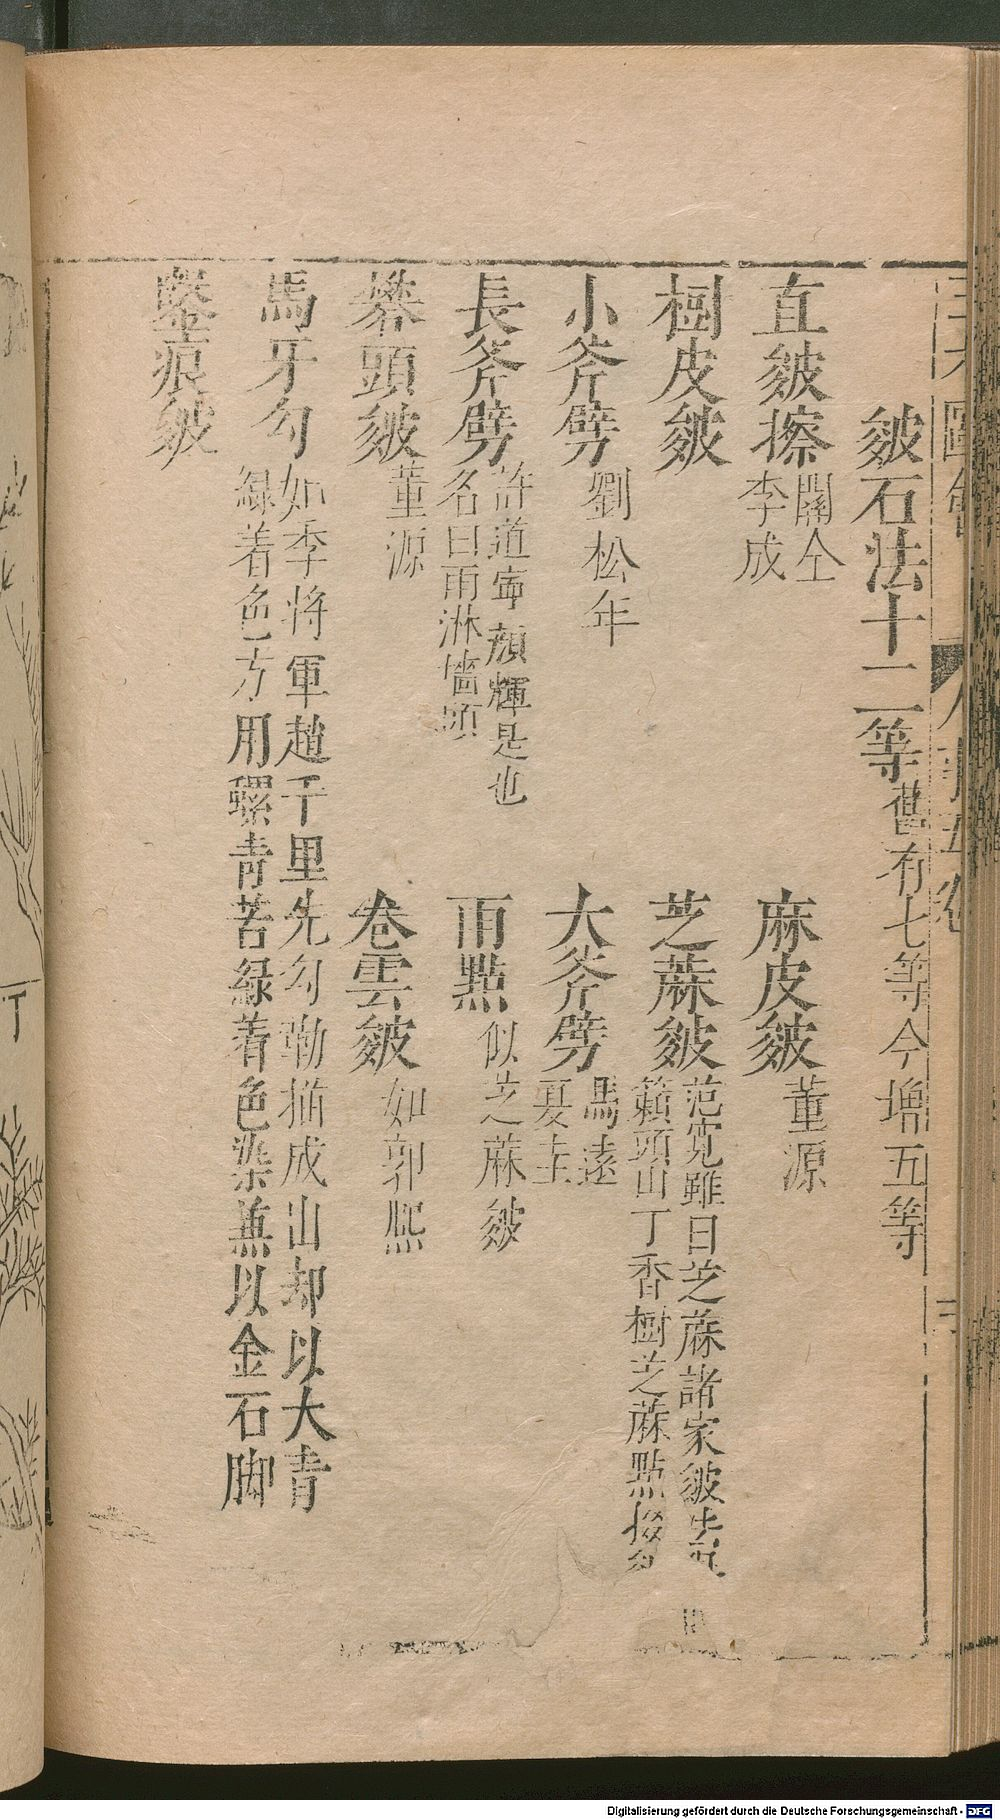 皴石法十二等舊有七等今增五等
直皴擦關仝李成
麻皮皴董源
樹皮皴
芝蔴皴范寛雖曰芝蔴諸家皴法
籟頭山丁香樹芝蔴點掇
小斧劈劉松年
大斧劈馬遠夏圭
長斧劈許道寧顔輝是也
名曰雨淋墻頭
雨點似芝蔴皴
礬頭皴董源
卷雲皴如郭熙
馬牙勾如李將軍趙千里先勾勒描成山却以大青
緑着色方用螺青苦緑着色染兼以金石脚
鏨痕皴
Digitalisierung gefördert durch die Deutsche Forschungsgemeinschaft - DFG